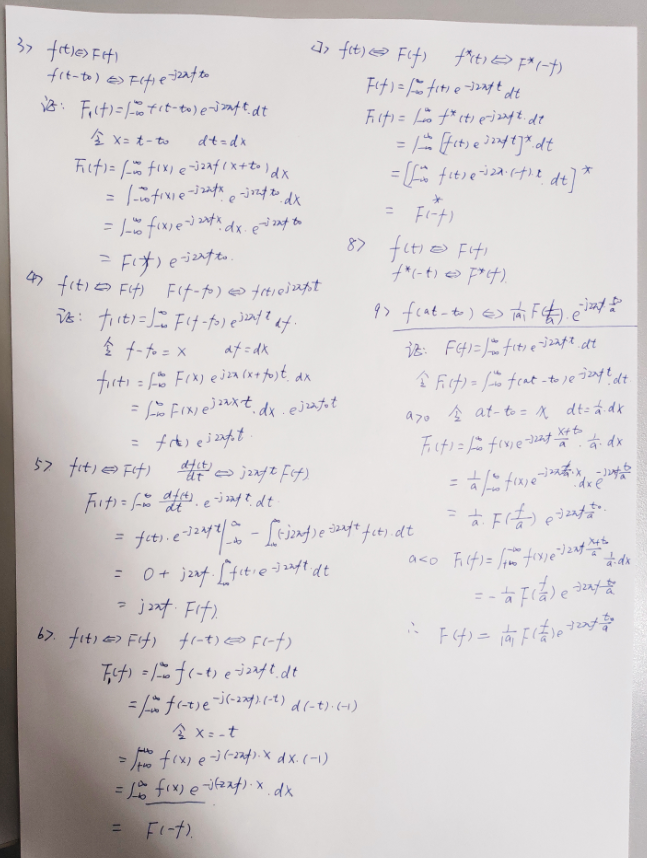 3> f(t)⇔F(f)
f(t-t₀) ⇔ F(f) e^{-j2πft₀}
证: F₁(f)=∫_{-∞}^{∞} f(t-t₀) e^{-j2πft}·dt
令 x=t-t₀ dt=dx
F₁(f)=∫_{-∞}^{∞} f(x) e^{-j2πf(x+t₀)} dx
=∫_{-∞}^{∞} f(x) e^{-j2πfx}·e^{-j2πft₀}·dx
=∫_{-∞}^{∞} f(x) e^{-j2πfx}·dx·e^{-j2πft₀}
= F(f) e^{-j2πft₀}.
4> f(t)⇔F(f) F(f-f₀) ⇔ f(t)e^{j2πf₀t}
证: f₁(t)=∫_{-∞}^{∞} F(f-f₀) e^{j2πft} df.
令 f-f₀=x df=dx
f₁(t)=∫_{-∞}^{∞} F(x) e^{j2π(x+f₀)t}·dx
=∫_{-∞}^{∞} F(x) e^{j2πx·t}·dx·e^{j2πf₀t}
= f(t) e^{j2πf₀t}.
5> f(t)⇔F(f) df(t)/dt ⇔ j2πf F(f)
F₁(f)=∫_{-∞}^{∞} df(t)/dt · e^{-j2πft}·dt
= f(t)·e^{-j2πft}|_{-∞}^{∞} - ∫_{-∞}^{∞}(-j2πf) e^{-j2πft} f(t)·dt
= 0+j2πf·∫_{-∞}^{∞} f(t) e^{-j2πft}·dt
= j2πf·F(f).
6>. f(t)⇔F(f) f(-t)⇔F(-f)
F₁(f)=∫_{-∞}^{∞} f(-t) e^{-j2πft}·dt
=∫_{-∞}^{∞} f(-t) e^{-j(-2πf)·(-t)} d(-t)·(-1)
令 x=-t
=∫_{+∞}^{-∞} f(x) e^{-j(-2πf)·x} dx·(-1)
=∫_{-∞}^{∞} f(x) e^{-j(-2πf)·x}·dx
= F(-f).
7> f(t)⇔F(f) f*(t)⇔F*(-f)
F(f)=∫_{-∞}^{∞} f(t) e^{-j2πft} dt
F₁(f)=∫_{-∞}^{∞} f*(t) e^{-j2πft}·dt
=∫_{-∞}^{∞} [f(t) e^{j2πft}]*·dt
=[∫_{-∞}^{∞} f(t) e^{-j2π·(-f)·t}·dt]*
= F*(-f)
8> f(t)⇔F(f)
f*(-t)⇔F*(f).
9> f(at-t₀) ⇔ 1/|a| F(f/a)·e^{-j2πf t₀/a}
证: F(f)=∫_{-∞}^{∞} f(t) e^{-j2πft}·dt
令 F₁(f)=∫_{-∞}^{∞} f(at-t₀) e^{-j2πft}·dt
a>0 令 at-t₀=x dt=1/a·dx
F₁(f)=∫_{-∞}^{∞} f(x) e^{-j2πf (x+t₀)/a}·1/a·dx
= 1/a ∫_{-∞}^{∞} f(x) e^{-j2π f/a·x}·dx e^{-j2πf t₀/a}
= 1/a·F(f/a) e^{-j2πf t₀/a}.
a<0 F₁(f)=∫_{+∞}^{-∞} f(x) e^{-j2πf (x+t₀)/a} 1/a·dx
= -1/a F(f/a) e^{-j2πf t₀/a}
∴ F(f) = 1/|a| F(f/a) e^{-j2πf t₀/a}